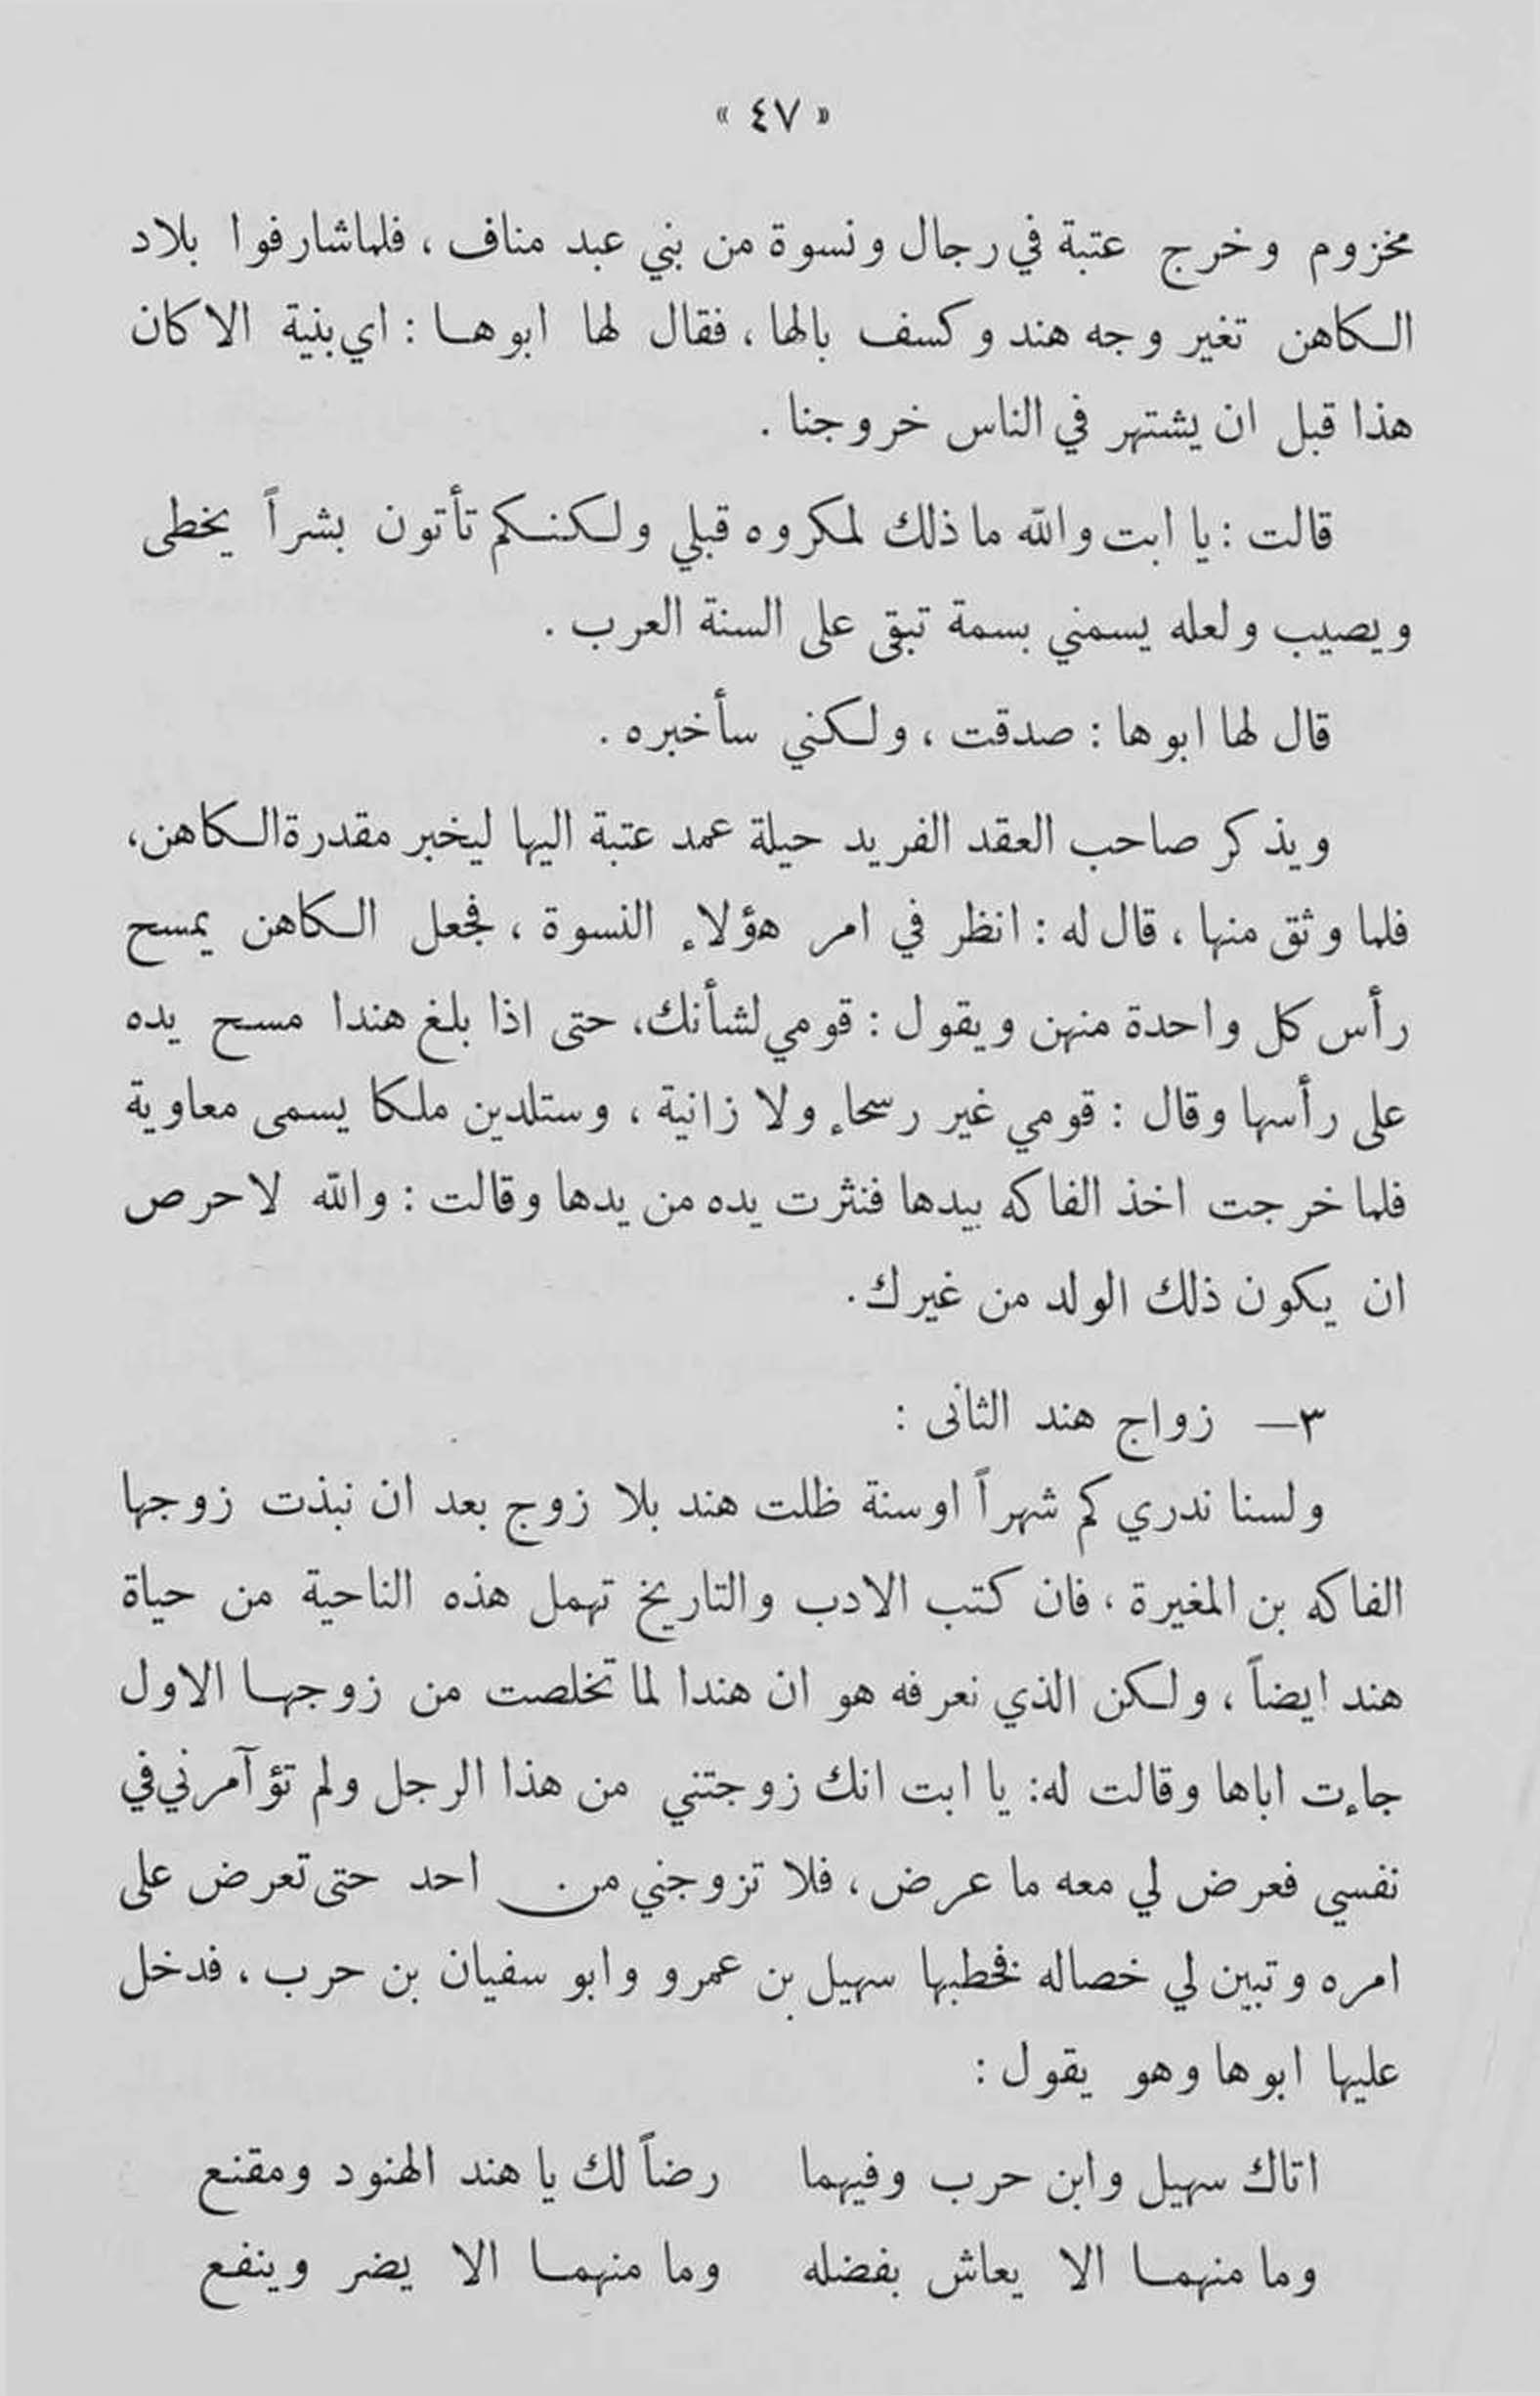 « ٤٧ »
مخزوم وخرج عتبة في رجال ونسوة من بني عبد مناف ، فلما شارفوا بلاد
الكاهن تغير وجه هند وكسف بالها ، فقال لها ابوها : اي بنية الا كان
هذا قبل ان يشتهر في الناس خروجنا .
قالت : يا ابت والله ما ذلك لمكروه قبلي ولكنكم تأتون بشراً يخطى
ويصيب ولعله يسمني بسمة تبقى على السنة العرب .
قال لها ابوها : صدقت ، ولكني سأخبره .
ويذكر صاحب العقد الفريد حيلة عمد عتبة اليها ليخبر مقدرة الكاهن،
فلما وثق منها ، قال له : انظر في امر هؤلاء النسوة ، فجعل الكاهن يمسح
رأس كل واحدة منهن ويقول : قومي لشأنك، حتى اذا بلغ هندا مسح يده
على رأسها وقال : قومي غير رسحاء ولا زانية ، وستلدين ملكا يسمى معاوية
فلما خرجت اخذ الفاكه بيدها فنثرت يده من يدها وقالت : والله لاحرص
ان يكون ذلك الولد من غيرك.
٣— زواج هند الثانى :
ولسنا ندري كم شهراً اوسنة ظلت هند بلا زوج بعد ان نبذت زوجها
الفاكه بن المغيرة ، فان كتب الادب والتاريخ تهمل هذه الناحية من حياة
هند ايضاً ، ولكن الذي نعرفه هو ان هندا لما تخلصت من زوجها الاول
جاءت اباها وقالت له: يا ابت انك زوجتني من هذا الرجل ولم تؤآمرني في
نفسي فعرض لي معه ما عرض ، فلا تزوجني من احد حتى تعرض على
امره وتبين لي خصاله فخطبها سهيل بن عمرو وابو سفيان بن حرب ، فدخل
عليها ابوها وهو يقول :
اتاك سهيل وابن حرب وفيهما رضاً لك يا هند الهنود ومقنع
وما منهما الا يعاش بفضله وما منهما الا يضر وينفع